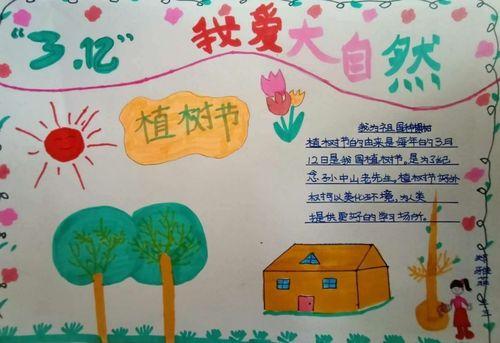 "3.12"
我爱大自然
植树节
我为祖国种棵树
植树节的由来是每年的3月
12日是我国植树节。是为了纪
念孙中山老先生。植树节好处
树可以美化环境,为人类
提供更好的学习场所。